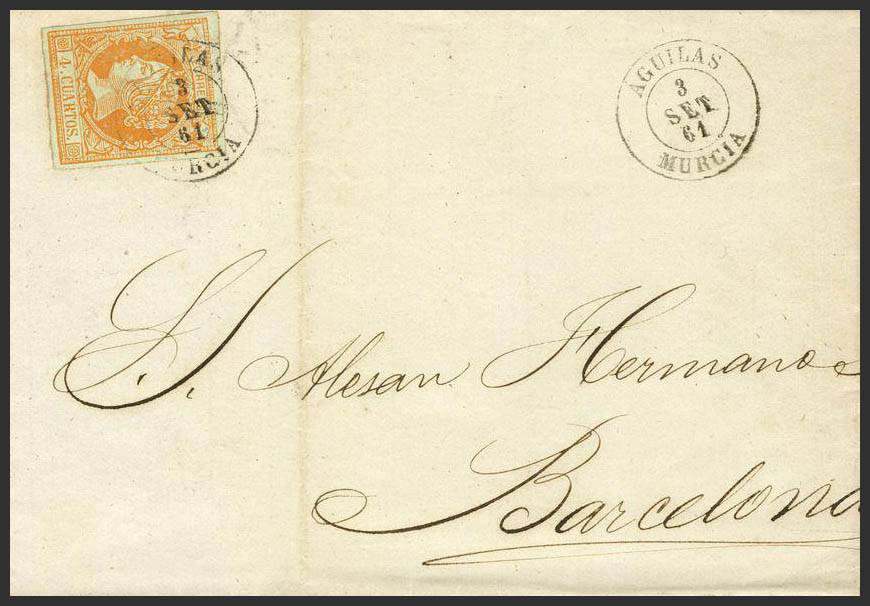 4 CUARTOS.
3
SET
61
RCIA
AGUILAS
3
SET
61
MURCIA
S. S. Alesan Hermano
Barcelona